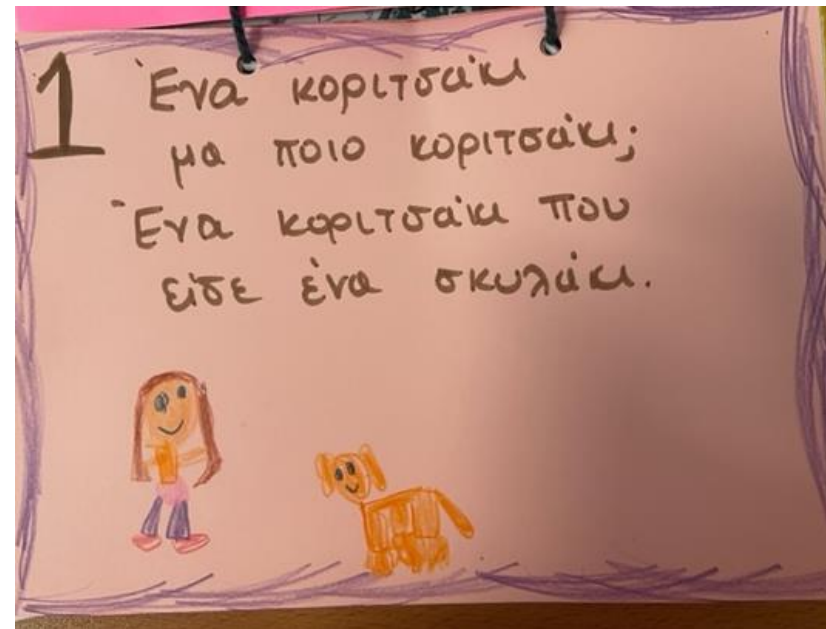 1 Ένα κοριτσάκι
μα ποιο κοριτσάκι;
Ένα κοριτσάκι που
είδε ένα σκυλάκι.